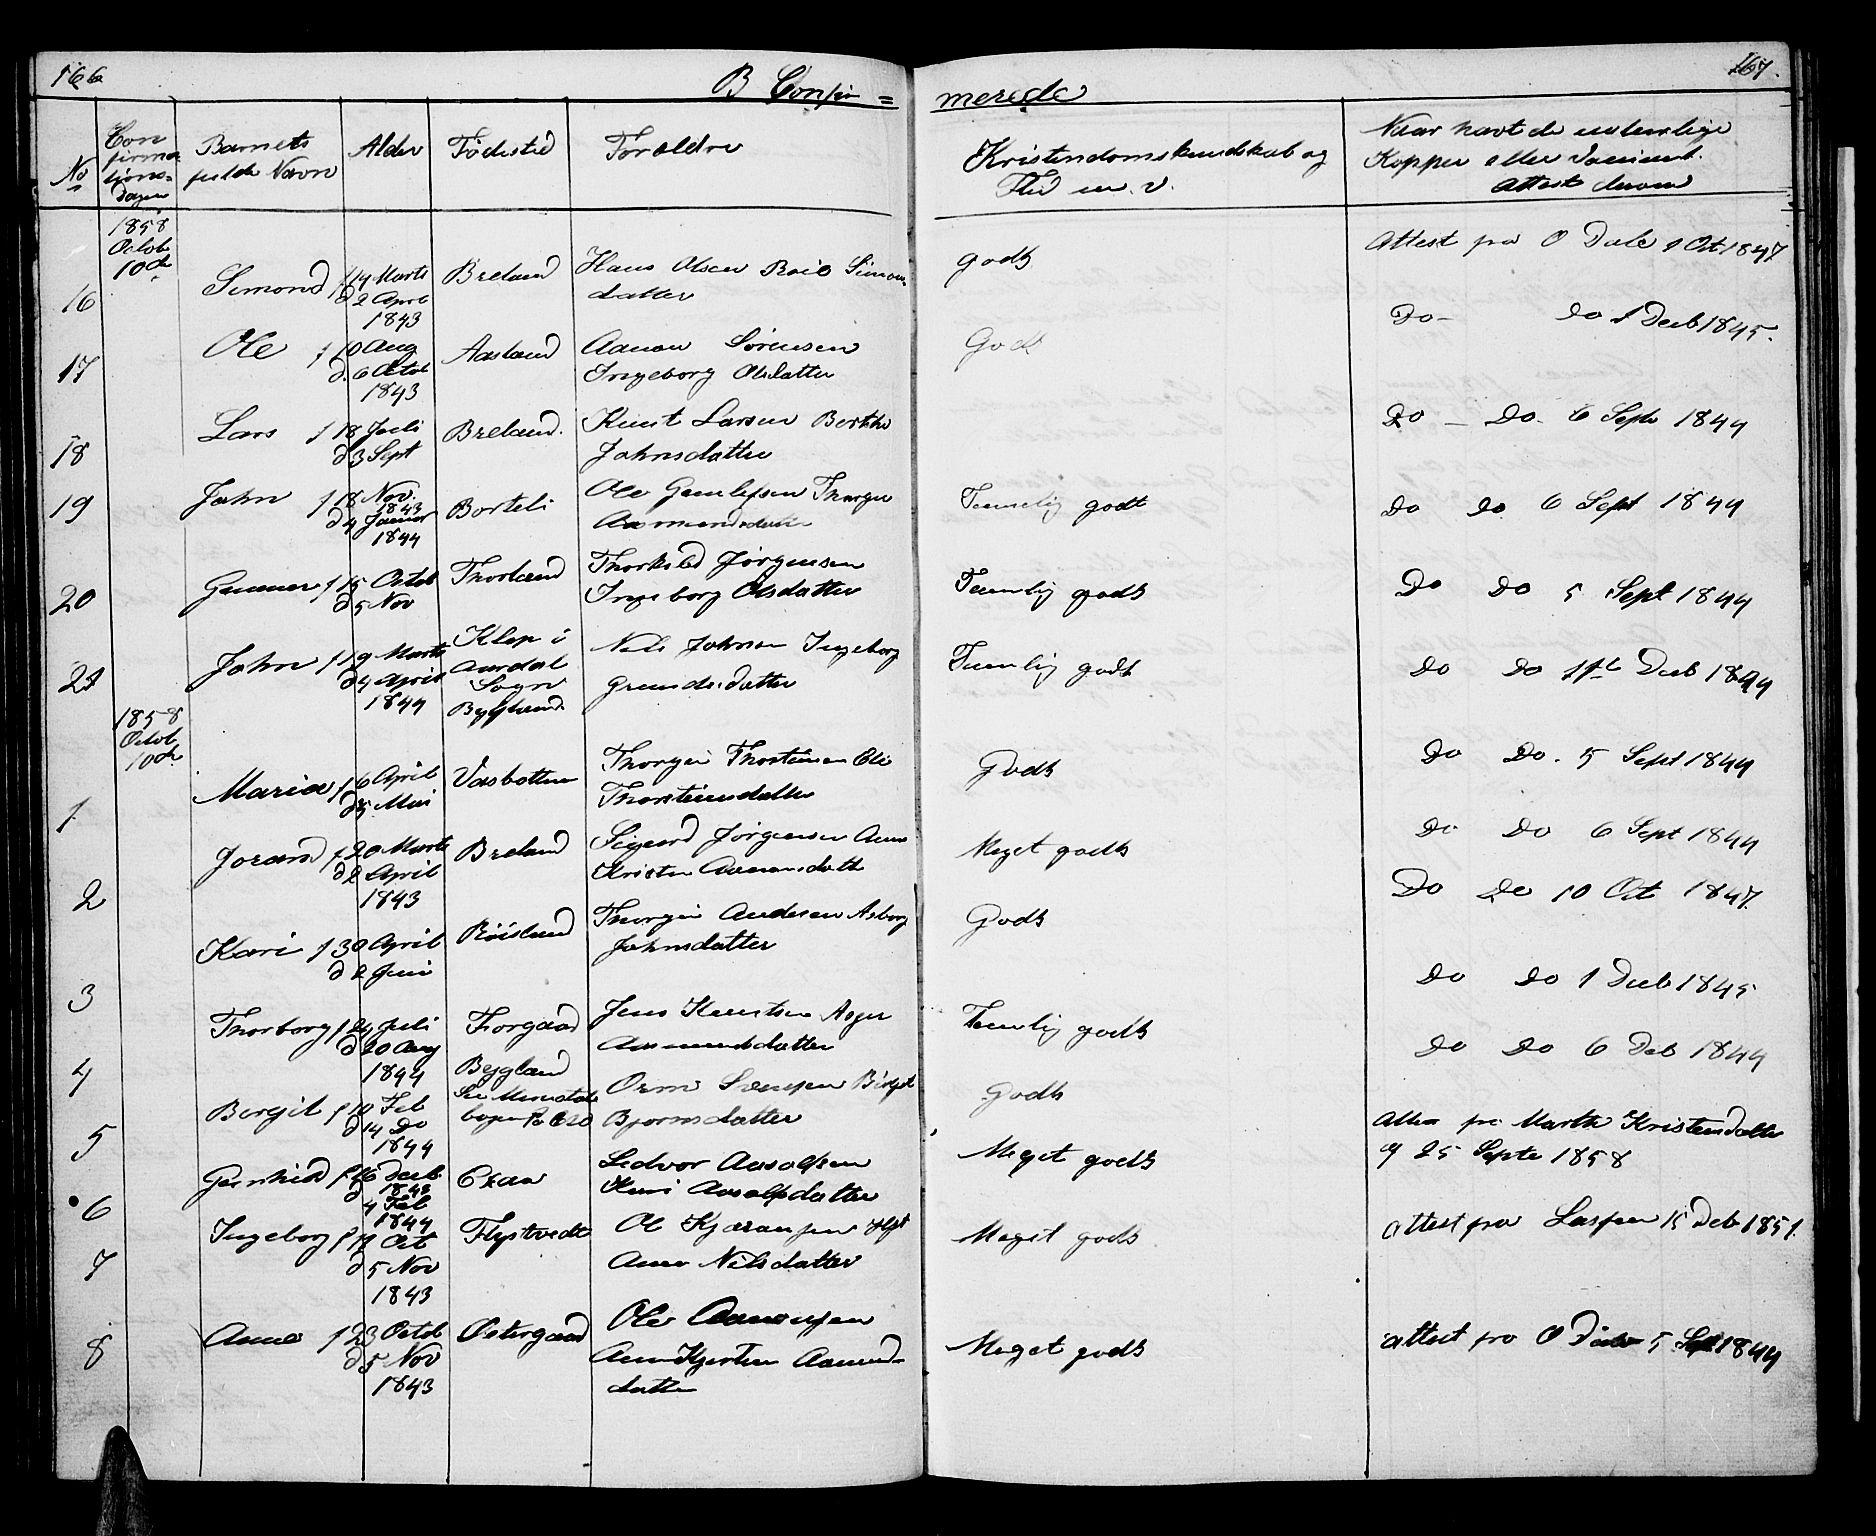 166
B Confir=
No
Con
firma
tions=
dagen
Barnets
fulde Navn
Alder
Fødested
Forældre
1858
Octob
10de
16
Simond f 14 Marts
d 2 April
1843
Breland
Hans Olsen Simons
datter
17
Ole f 10 Aug
d. 6 Octob
1843
Aasland
Aanon Sørensen
Ingeborg Olsdatter
18
Lars f 18 Juli
d 3 Sept
Breland.
Knut Larsen Berthe
Johnsdatter
19
John f 18 Nov.
1843
d 4 Januar
1844
Borteli
Ole Gunlefsen Thorger
Aamundsdatter
20
Gunnar f 15 Octob
d 5 Nov
Thorland
Thorkild Jørgensen
Ingeborg Olsdatter
21
John f 19 Marts
d 4 April
1844
Klep i
Aardal
Sogn
Bygland
Nils Johnsen Ingeborg
datter
1858
Octob
10de
1
Maria f 6 April
d 5 Mai
Vasbotten
Thorger Thorsteinsen
Thorsteinsdatter
2
Jorand f 20 Marts
d 2 April
1843
Breland
Sigurd Jørgensen Anne
Kristin Aanonsdatter
3
Kari f 30 April
d 2 Juni
Røisland
Thorger Andersen Asborg
Johnsdatter
4
Thorborg f 24 Juli
d 20 Aug
1844
Jens Knutsen Asger
Aamundsdatter
5
Bergit f 10 Feb
d 14 Do
1844
Bygland
Se Ministerial
bogen
Orm Svensen Birgit
Bjornsdatter
6
Gunhild f 16 Decb
1843
d 4 Feb
1844
Ledvor Aasolfsen
Kari Aasolfsdatter
7
Ingeborg f 14 Oct
d 5 Nov
1843
Flystvedt
Ol Kjøransen
Anne Nilsdatter
8
Anne f 23 Octob
d 5 Nov
1843
Østergaard
Ole Aanonsen
Ann Kjersten Aamunds-
datter
167.
merede
Kristendomskundskab og
Flid m. v.
Naar havt de naturlige
Kopper eller Vaccineret.
Attest derom
godt
Attest fra O Dale 1 Oct 1847
Godt
Do - do 1 Decb 1845.
Do - Do. 6 Septr 1844
Temmelig godt
Do do 6 Sept 1844
Temlig godt
Do Do 5 Sept 1844
Temlig godt
Do Do 11te Decb 1844
Godt
Do Do. 5 Sept 1844
Meget godt
Do Do 6 Sept 1844
Godt
Do Do 10 Oct 1847.
Do Do 1 Decb 1845
Temlig godt
Do Do 6 Deb 1844
Godt
Attest fra Marthe Kristensdatter
af 25 Septr 1858
Meget godt
Attest fra Lassen 15 Deb 1851.
Meget godt
Meget godt
Attest fra O Dale 5 Sept 1844